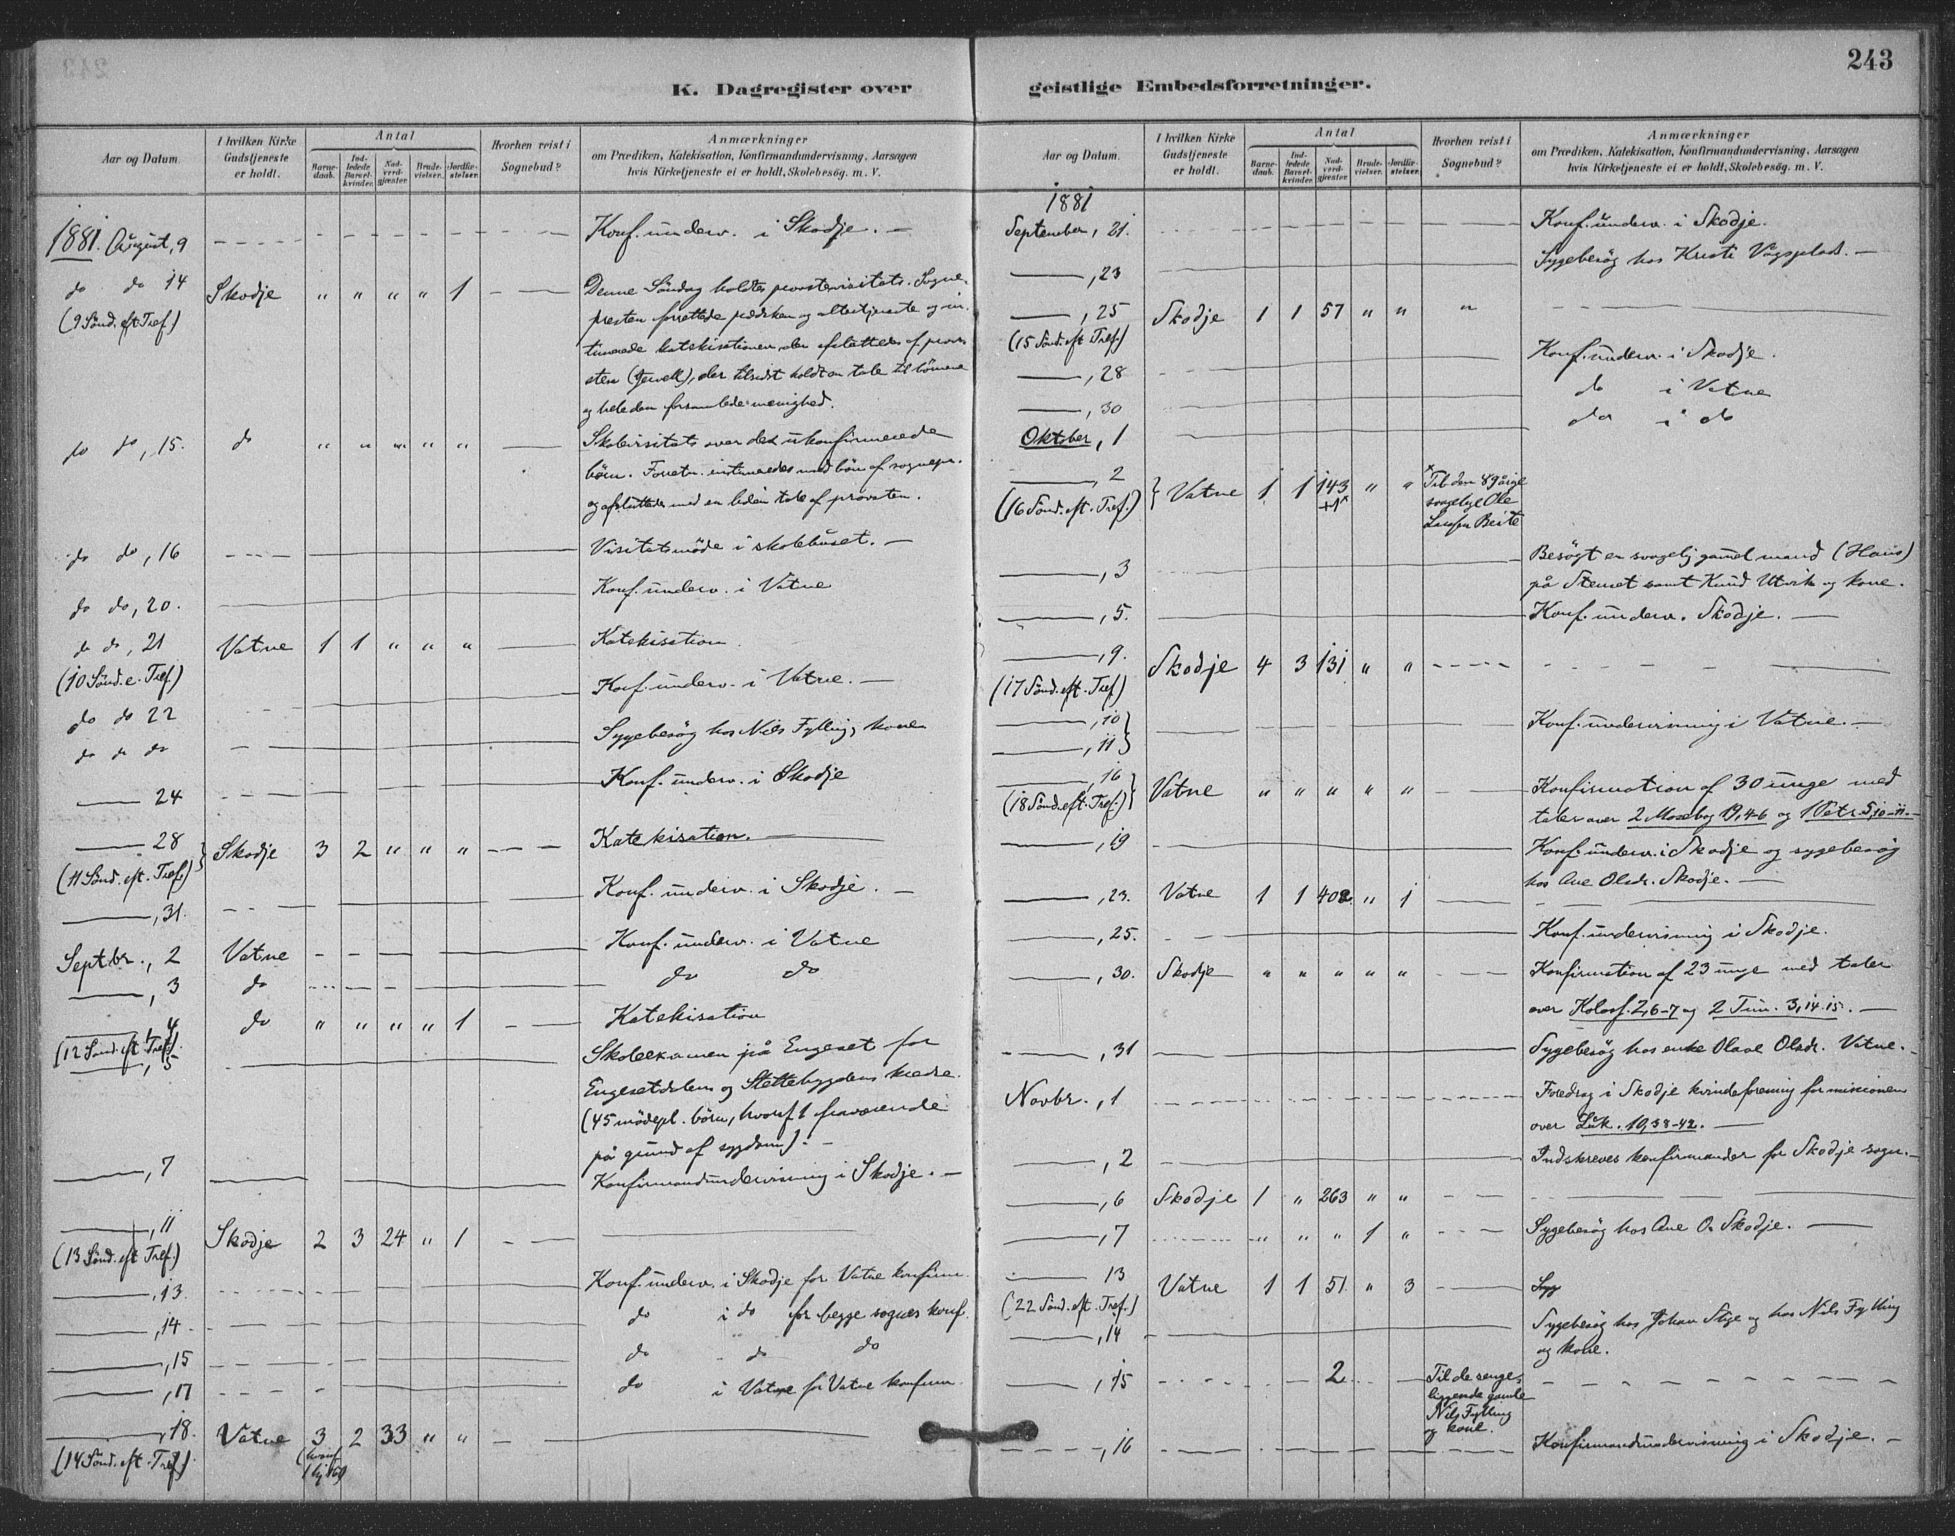 K. Dagregister over
Aar og Datum.
I hvilken Kirke Gudstjeneste er holdt.
Antal
Barnedaab.
Indledede Barselkvinder.
Nadverdgjæster.
Brudevielser.
Jordfæstelser.
Hvorhen reist i Sognebud?
Anmærkninger
om Prædiken, Katekisation, Konfirmandundervisning, Aarsagen
hvis Kirketjeneste ei er holdt, Skolebesøg. m. V.
1881. August, 9 Konf. underv. i Skodje. —
do do 14 Skodje " " " " 1 — — Denne Söndag holdtes provstevisitats. Sogne-
(9 Sönd. eft Tref) presten forrettede prædiken og altertjeneste og in-
timerede katekisationen, der afsluttedes af prov-
sten (Jervell), der tilsidst holdt en tale til börnene
og hele den forsamlede menighed.
do do, 15. do " " " " " — Skolevisitats over de ukonfirmerede
börn. Forretn. intimeredes med bön af sognepr.
og afsluttedes med en liden tale af provsten.
do do, 16 Visitatsmöde i skolehuset. —
do do, 20. Konf. underv. i Vatne
do do, 21 Vatne 1 1 " " " — Katekisation
(10 Sönd. e. Tref)
do do 22 Konf. underv. i Vatne. —
do do do Sygebesög hos Nils Fyllings kone
— 24 Konf. underv. i Skodje
— 28 Skodje 3 2 " " " — Katekisation. —
(11 Sönd. eft. Tref.)
—, 31. Konf. underv. i Skodje. —
Septbr., 2 Vatne — Konf. underv. i Vatne
—, 3 do — do do
—, 4 do " " " " 1 — Katekisation
(12 Sönd. eft Tref).
—, 5 Skoleexamen på Engeset for
Engesetdalens og Stettebygdens kredse.
(45 mödepl. börn, hvoraf 1 fraværende
på grund af sygdom). —
—, 7 Konfirmandundervisning i Skodje. —
—, 11 Skodje 2 3 24 " 1 —
(13 Sönd. eft Tref.)
—, 13. Konf. underv. i Skodje for Vatne konfirm.
—, 14 do i do for begge sognes konf.
—, 15 do do do
—, 17 do i Vatne for Vatne konfirm.
—, 18. Vatne 3 2 33 " "
(14 Sönd. eft. Tref) (hvoraf
1 hj.
geistlige Embedsforretninger.
243
Aar og Datum.
I hvilken Kirke Gudstjeneste er holdt.
Antal
Barnedaab.
Indledede Barselkvinder.
Nadverdgjæster.
Brudevielser.
Jordfæstelser.
Hvorhen reist i Sognebud?
Anmærkninger
om Prædiken, Katekisation, Konfirmandundervisning, Aarsagen
hvis Kirketjeneste ei er holdt, Skolebesøg. m. V.
1881
September, 21. Konf. underv. i Skodje.
—, 23 Sygebesög hos Kristi Vågsplads. —
—, 25 Skodje 1 1 57 " " " —
(15 Sönd. eft Tref.)
—, 28 Konf. underv. i Skodje.
—, 30 do i Vatne
Oktober, 1 do i do
—, 2 Vatne 1 1 143 " " ˣTil den 89årige
(16 Sönd. eft. Tref.) +1ˣ svagelige Ole
Larssen Beite
—, 3 Besögt en svagelig gamel mand (Hans)
på Stenset samt Knud Utvik og kone.
—, 5. Konf. underv. Skodje. —
—, 9. Skodje 4 3 131 " " —
(17 Sönd. eft. Tref)
—, 10
—, 11 Konf. undervisning i Vatne. —
—, 16 Vatne " " " " " — Konfirmation af 30 unge med
(18 Sönd. eft. Tref.) taler over 2 Mosebog 19,4-6 og 1 Petr. 5,10-11. —
—, 19 Konf. underv. i Skodje og sygebesög
hos Ane Olsdr. Skodje. —
—, 23. Vatne 1 1 402 " 1 —
—, 25. Konf. undervisning i Skodje.
—, 30. Skodje " " " " " — Konfirmation af 23 unge med taler
over Koloss. 2,6-7 og 2 Tim. 3,14.15. —
—, 31 Sygebesög hos enke Olave Olsdr. Vatne. —
Novbr., 1 Foredrag i Skodje kvindeforening for missionen
over Luk. 10,38-42. —
—, 2 Indskreves konfirmander for Skodje sogn. —
—, 6 Skodje 1 " 263 " " —
—, 7 " " " 1 " — Sygebesög hos Ane O. Skodje. —
— 13 Vatne 1 1 51. " 3 — Syg
(22 Sönd. eft. Tref.)
—, 14 Sygebesög hos Johan Stige og hos Nils Fylling
og kone.
—, 15 2 Til de senge-
liggende gamle
Nils Fylling
og kone.
—, 16 Konfirmandundervisning i Skodje. —